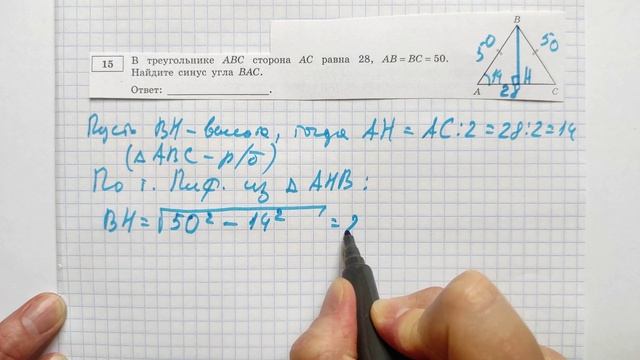 15
В треугольнике ABC сторона AC равна 28, AB = BC = 50.
Найдите синус угла BAC.
Ответ: ____________.
B
50
50
14
H
A
28
C
Пусть BH – высота, тогда AH = AC : 2 = 28 : 2 = 14
(△ ABC – р/б)
По т. Пиф. из △ AHB :
BH = √50² – 14² =